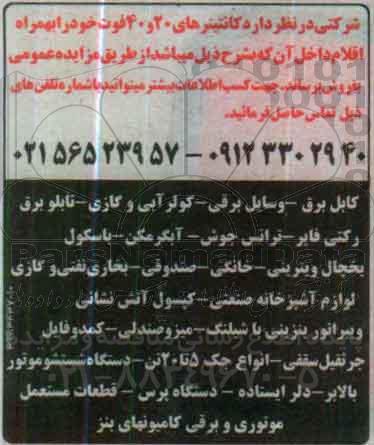 شرکتی در نظر دارد کانتینرهای ۲۰ و ۴۰ فوت خود را بهمراه
اقلام داخل آن که بشرح ذیل میباشد از طریق مزایده عمومی
بفروش برساند. جهت کسب اطلاعات بیشتر میتوانید با شماره تلفن های
ذیل تماس حاصل فرمائید.
۰۹۱۲ ۳۳۰ ۲۹ ۴۰ – ۰۲۱ ۵۶۵ ۲۳۹ ۵۷
کابل برق – وسایل برقی – کولر آبی و گازی – تابلو برق
رکتی فایر – ترانس جوش – آبگرمکن – باسکول
یخچال ویترینی – خانگی – صندوقی – بخاری نفتی و گازی
لوازم آشپزخانه صنعتی – کپسول آتش نشانی
ویبراتور بنزینی با شیلنگ – میز و صندلی – کمد و فایل
جرثقیل سقفی – انواع جک ۵ تا ۲۰ تن – دستگاه شستشو موتور
بالابر – دلر ایستاده – دستگاه پرس – قطعات مستعمل
موتوری و برقی کامیونهای بنز